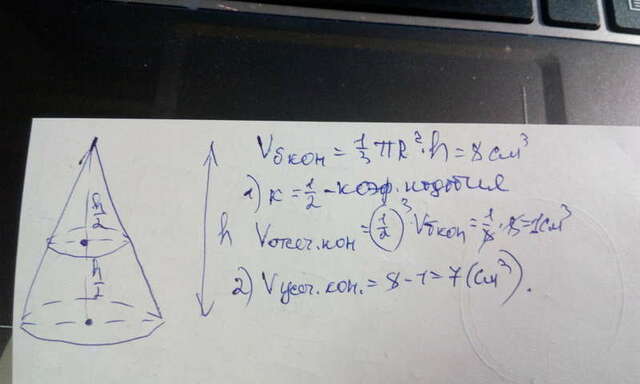 V б кон = 1/3 πR²·h = 8 см³
1) к = 1/2 - коэф. подобия
h/2
h
V отсеч. кон = (1/2)³ V б кон = 1/8 · 8 = 1 см³
h/2
2) V усеч. кон. = 8 - 1 = 7 (см³).